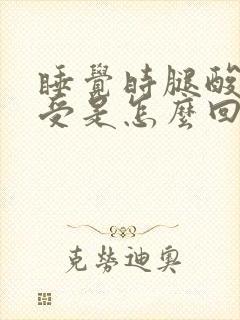 睡覺時腿酸
受是怎麼回
克勞迪奧